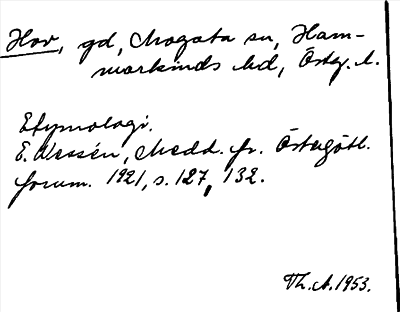 Hov, gd, Mogata sn, Ham-
markinds hd, Österg. l.
Etymologi.
E. Wessén, Medd. fr. Östergötl.
fornm. 1921, s. 127, 132.
Th. A. 1953.